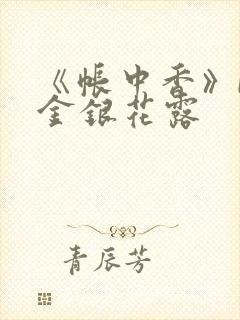 《帳中香》
金銀花露
青辰芳